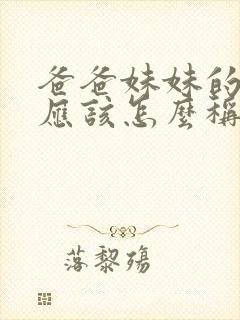 爸爸妹妹的
應該怎麼稱
落黎殤